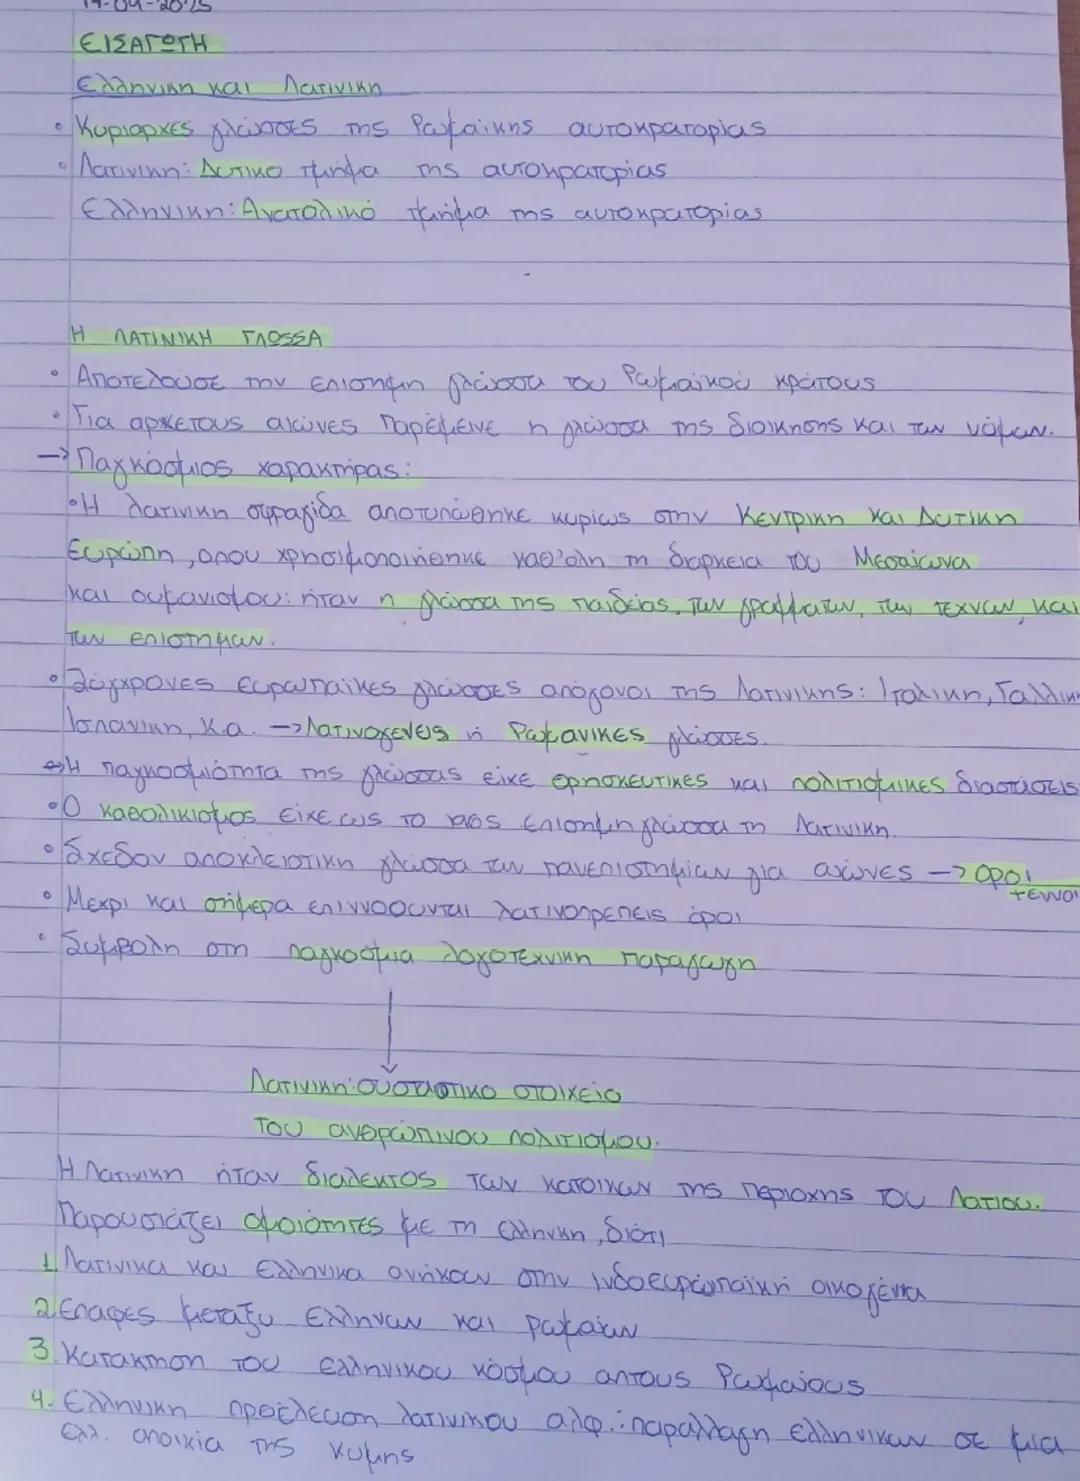 17-04-2025
ΕΙΣΑΓΩΓΗ
Ελληνικη και Λατινικη
• Κυριαρχες γλώσσες της Ρωμαικης αυτοκρατορίας
• Λατινικη: Δυτικο τμήμα της αυτοκρατορίας
Ελληνικη: Ανατολικό τμήμα της αυτοκρατορίας
Η ΛΑΤΙΝΙΚΗ ΓΛΩΣΣΑ
• Αποτελούσε την επισημη γλώσσα του Ρωμαϊκού κράτους
• Για αρκετους αιώνες παρέμεινε η γλώσσα της διοικησης και των νόμων.
→ Παγκόσμιος χαρακτήρας:
• Η λατινικη σφραγίδα αποτυπώθηκε κυρίως στην Κεντρικη και Δυτικη
Ευρώπη, οπου χρησιμοποιηθηκε καθ'όλη τη διαρκεια του Μεσαίωνα
και ουμανισμου: ήταν η γλώσσα της παιδείας, των γραμματων, των τεχνων, και
των επιστημων.
• Σύγχρονες ευρωπαϊκες γλώσσες απόγονοι της Λατινικης: Ιταλικη, Γαλλικη
Ισπανικη, κ.α. → Λατινογενεις ή Ρωμανικες γλώσσες.
⇔ Η παγκοσμιότητα της γλώσσας είχε θρησκευτικες και πολιτισμικες διαστάσεις
• Ο καθολικισμος είχε ως το 1965 επισημη γλώσσα τη Λατινικη.
• Σχεδον αποκλειστικη γλώσσα των πανεπιστημίων για αιώνες → οροι
+εννοι
• Μεχρι και σήμερα επιννοουνται λατινοπρεπεις όροι
• Συμβολη στη παγκοσμια λογοτεχνικη παραγωγη
Λατινικη: ουσιαστικο στοιχειο
του ανθρώπινου πολιτισμου.
Η Λατινικη ήταν διαλεκτος των κατοικων της περιοχης του Λατιου.
Παρουσιάζει ομοιότητες με τη ελληνικη, διότι
1. Λατινικα και Ελληνικα ανήκουν στην ινδοευρώπαϊκή οικογένεια
2. Επαφες μεταξυ Ελληνων και ρωμαίων
3. Κατακτηση του ελληνικου κόσμου απτους Ρωμαίους
4. Ελληνικη προέλευση λατινικου αλφ.: παραλλαγη ελληνικων σε μια
ελλ. αποικία της κυμης